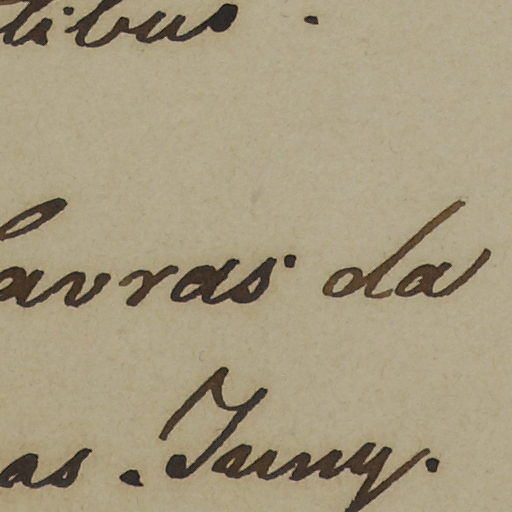 tibus .
lavras da
as . Juny.